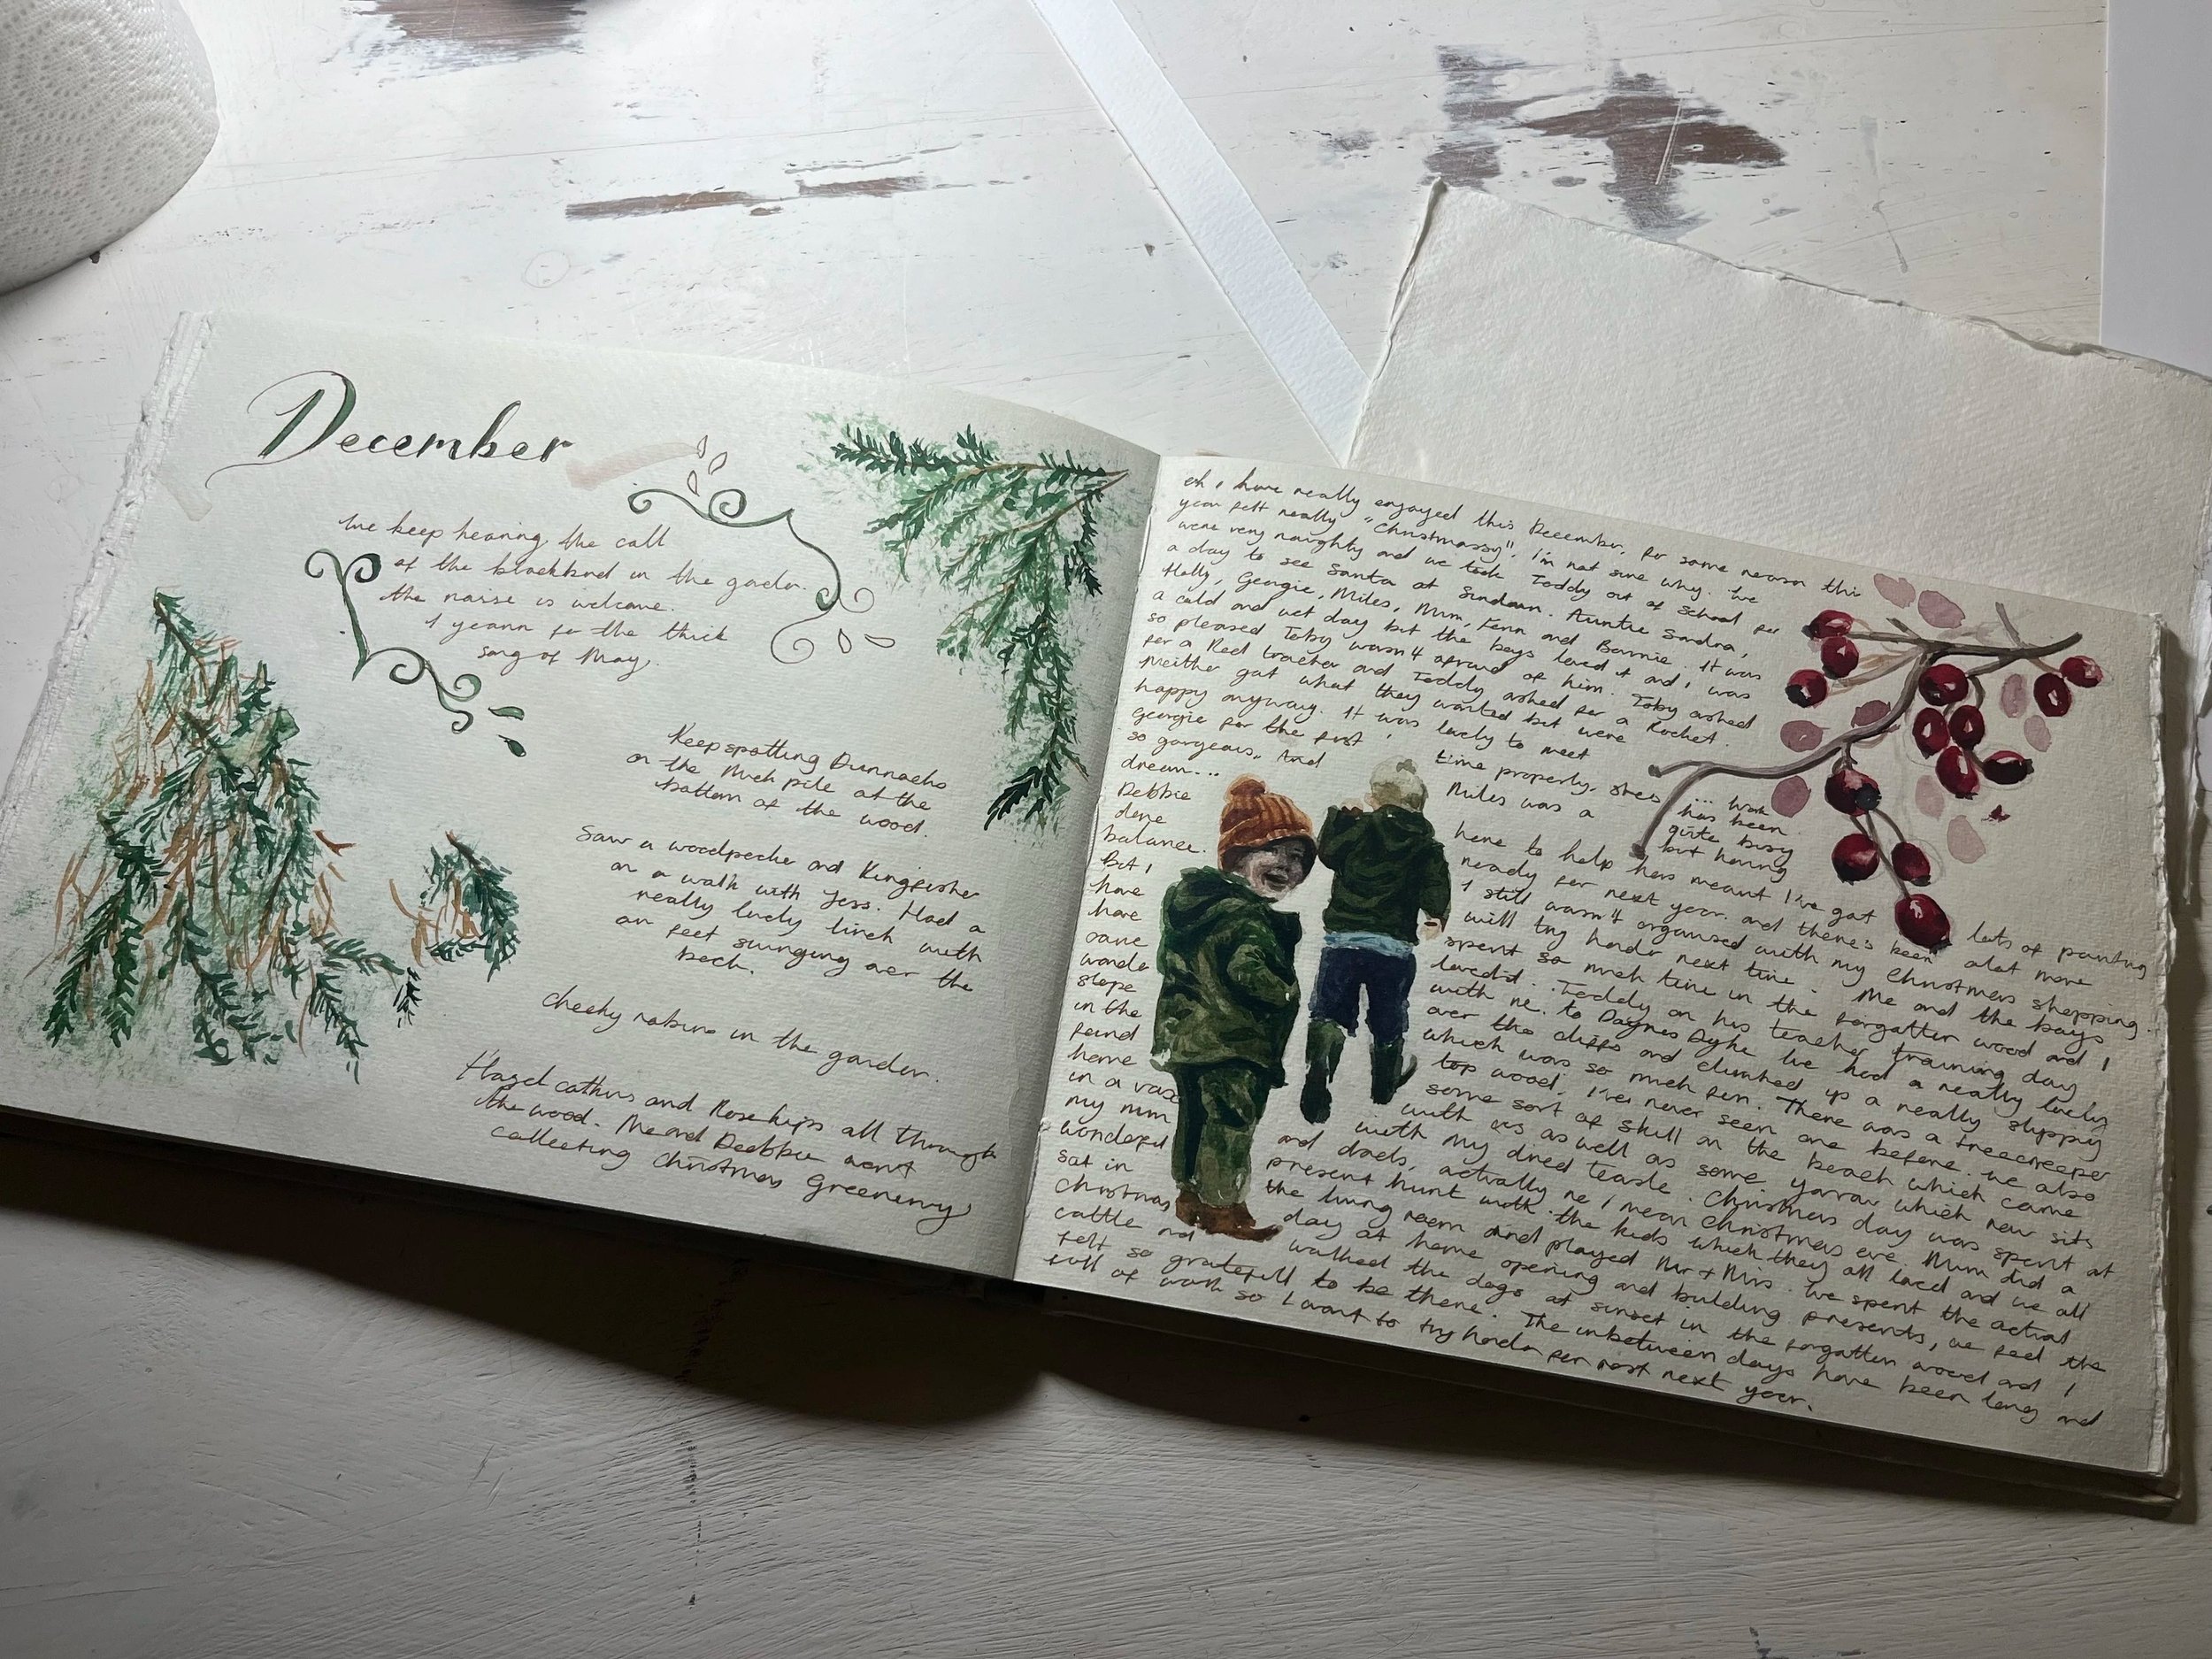 December
We keep hearing the call
of the blackbird in the garden.
the noise is welcome.
I yearn for the thick
song of May.
Keep spotting Dunnocks
on the Much pile at the
bottom of the wood.
Saw a woodpecker and Kingfisher
on a walk with Jess. Had a
really lovely lunch with
our feet swinging over the
beck.
Cheeky robins in the garden.
Hazel catkins and Rosehips all through
the wood. Me and Debbie went
collecting Christmas Greenery
oh I have really enjoyed this December, for some reason this
year felt really "Christmassy". I'm not sure why. We
were very naughty and we took Teddy out of School for
a day to see Santa at . Auntie Sandra,
Holly, Georgie, Miles, Mum, Fenn and Barnie. It was
a cold and wet day but the boys loved it and I was
so pleased Toby wasn't afraid of him. Toby asked
for a Red tractor and Teddy asked for a Rocket.
Neither got what they wanted but were
happy anyway. It was lovely to meet
Georgie for the first time properly, shes
so gorgeous. And Miles was a
dream... ... Work
has been
quite busy
but having
Debbie here to help has meant I've got lots of painting
done ready for next year. and there's been alot more
balance. I still wasn't organised with my Christmas shopping.
But I will try harder next time. Me and the boys
have spent so much time in the forgotten wood and I
have loved it. Teddy on his teacher training day
came with me to Daynes Dyke we had a really lovely
wander over the cliffs and climbed up a really slippy
slope which was so much fun. There was a treecreeper
in the top wood. I've never seen one before. we also
found some sort of skull on the beach which came
home with us as well as some yarrow which now sits
in a vase with my dried teasle. Christmas day was spent at
my mum and dads, actually no I mean Christmas eve. Mum did a
wonderful present hunt with the kids which they all loved and we all
sat in the living room and played Mr & Mrs. We spent the actual
Christmas day at home opening and building presents, we feed the
cattle and walked the dogs at sunset in the forgotten wood and I
felt so gratefull to be there. The inbetween days have been long and
full of work so I want to try harder for next year.